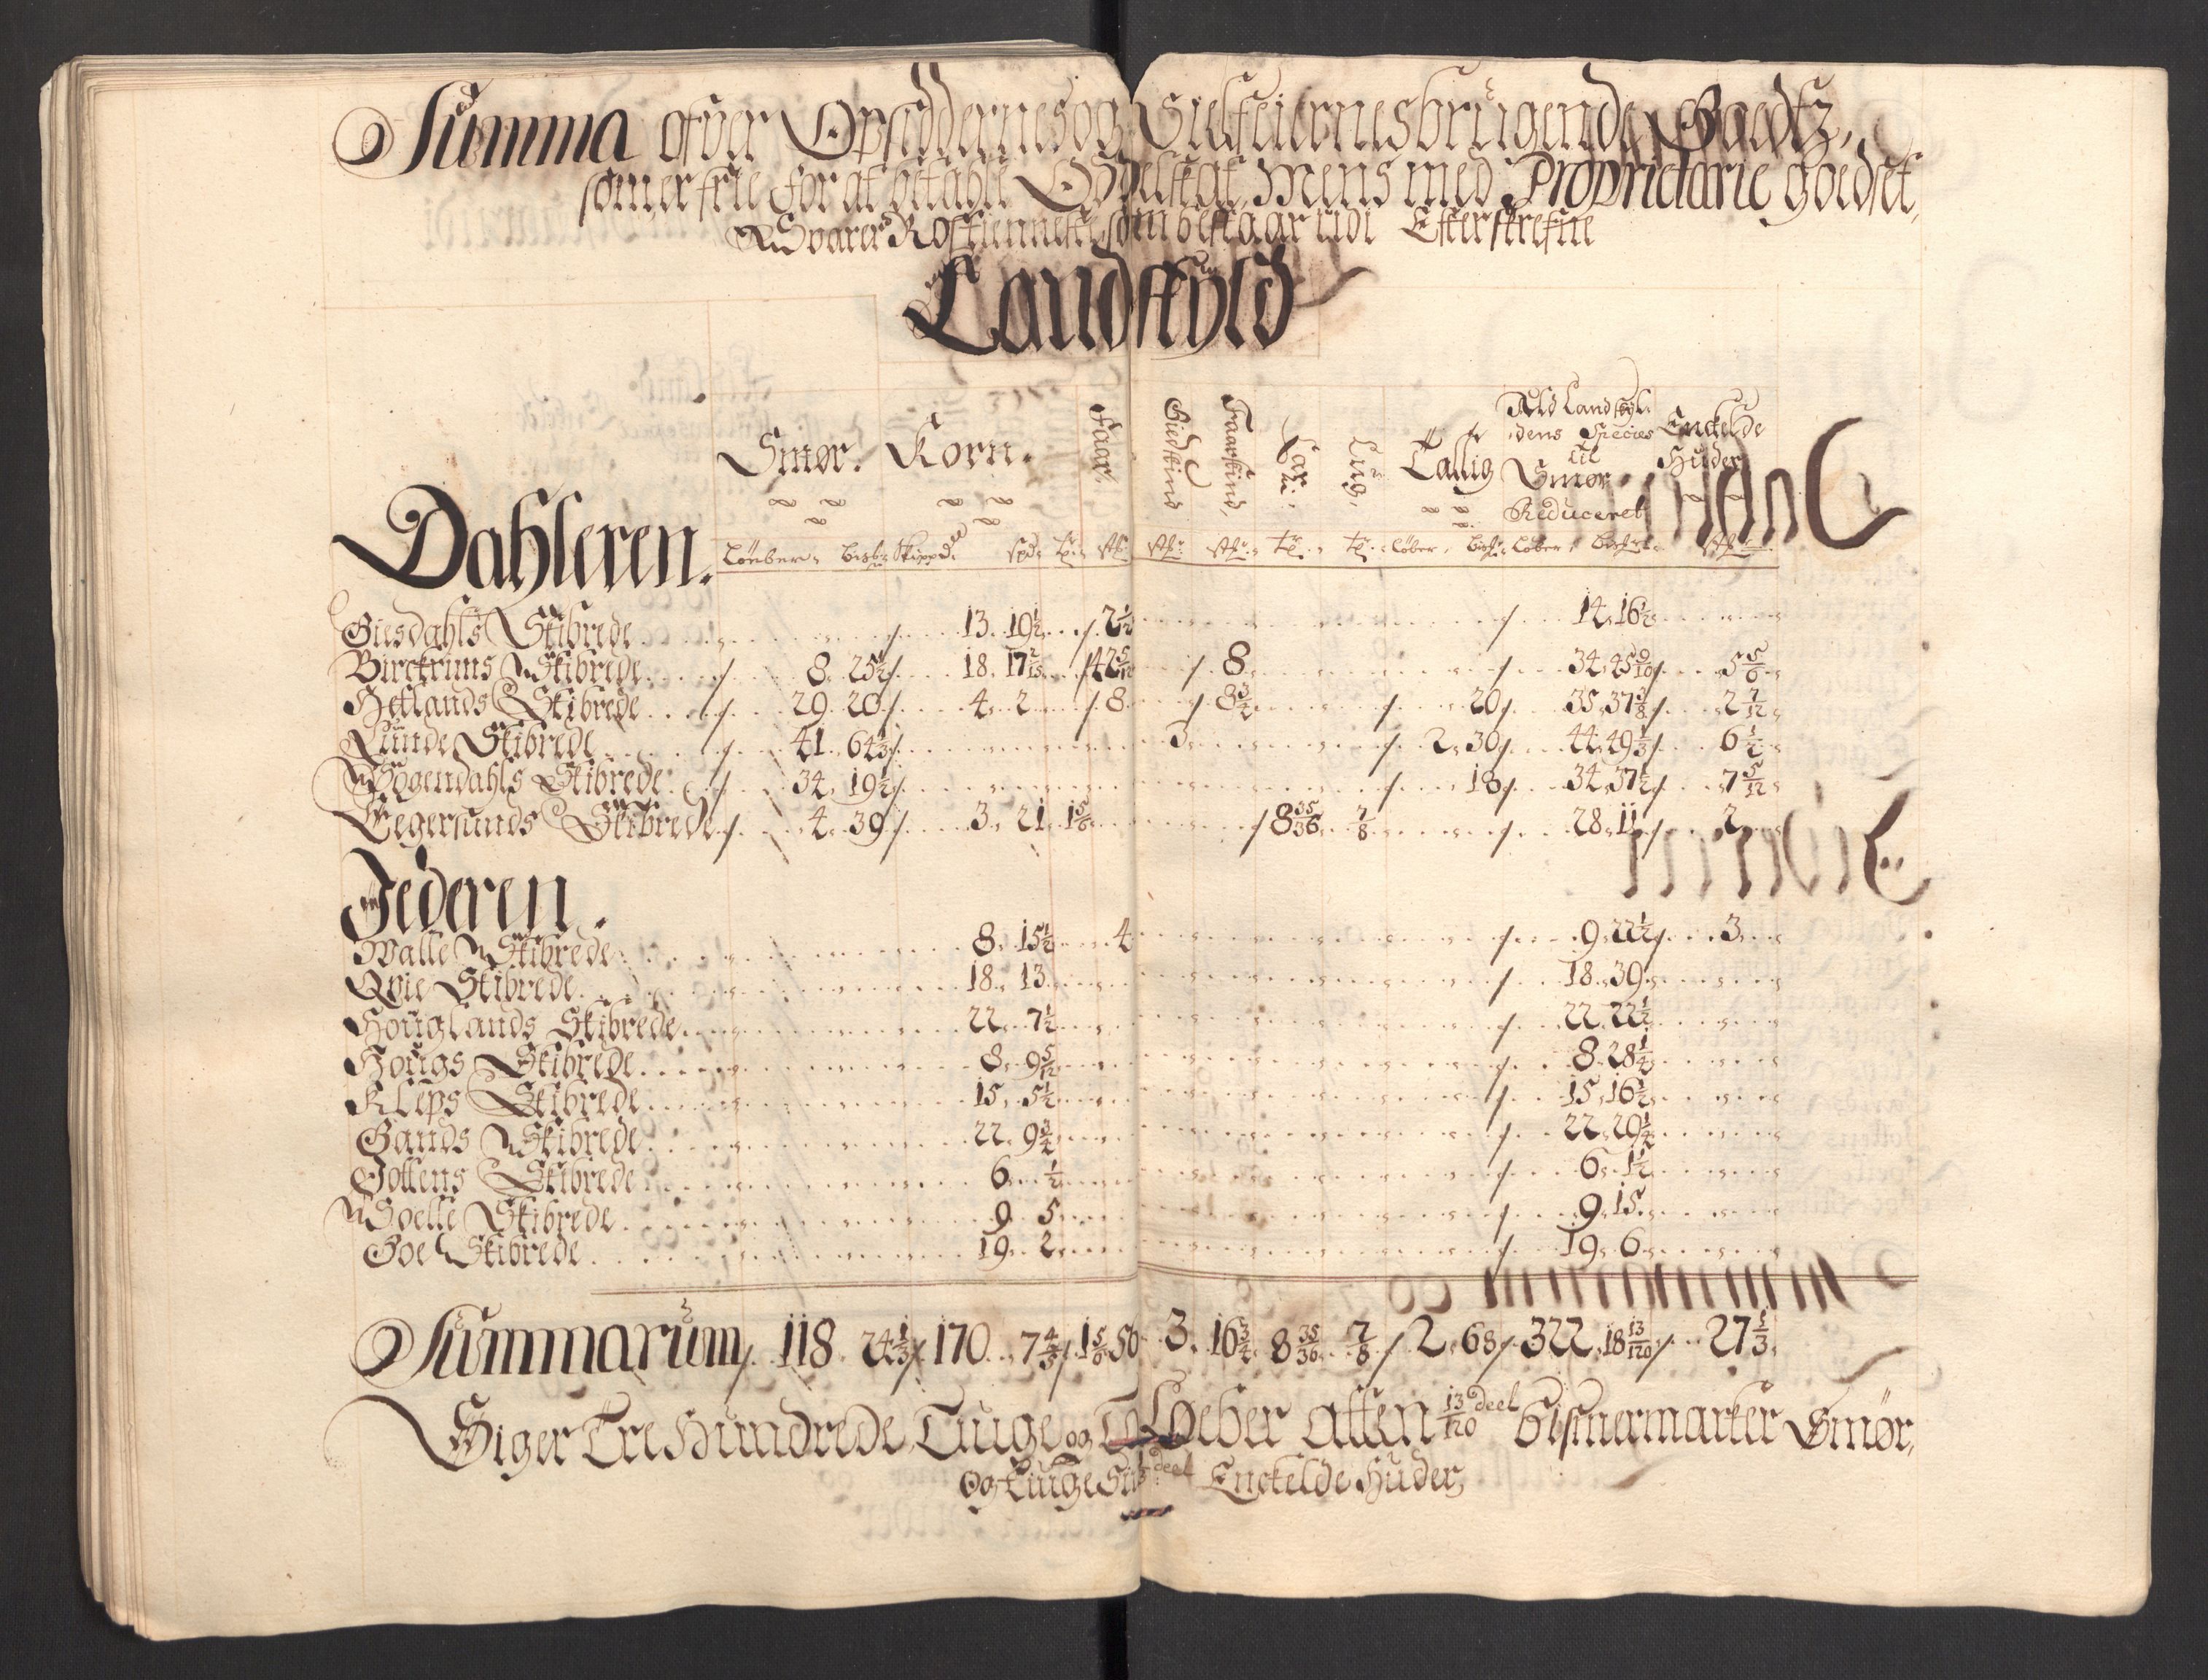 Summa ofver Opsiddernes og Sielfeiernes brugende Goedtz,
som er frie for at betahle Odelskat, Mens med Proprietarie goedset,
Svarer Rostienneste, som bestaar udi Efterskrefne
Landskyld
Smør. Korn. Faar. Giedskind Faarskind, Lax. Lug. Tallig Ald Landskyl dens Species til Smør Reduceret Enckelde Huder
Løeber bisk Skippd spd st st st løber bisk Løber st
Dahleren.
Giesdahls Skibrede 13. 10½ 2½ 14. 16½
Birckrims Skibrede 8. 25½ 18. 17 2/15 42 5/12 8 34. 45 9/10 5 5/6
Hetlands Skibrede 29. 20 4. 2 8 8¾ 20 35. 37 3/8 2 7/12
Lunde Skibrede 41. 64⅓ 3 2. 30 44. 49⅓ 6½
Sogendahls Skibrede 34. 19½ 18 34. 37½ 7 5/12
Eegersunds Skibrede 4. 39 3. 21 1 5/6 8 35/36 7/8 28. 11 2
Jederen.
Walle Skibrede 8. 15½ 4 9. 22½ 3
Qvie Skibrede 18. 13 18. 39
Houglands Skibrede 22. 7½ 22. 22½
Hougs Skibrede 8. 9 5/12 8. 28¼
Kleps Skibrede 15. 5½ 15. 16½
Gands Skibrede 22. 9¾ 22. 29¼
Jottens Skibrede 6. ½ 6. 1½
Soelle Skibrede 9. 5 9. 15
Goe Skibrede 19. 2 19. 6
Summarum 118. 24⅓ 170. 7 4/5 1 5/6 50 3. 16¾ 8 35/36 7/8 2. 68 322. 18 13/120 27⅓
Siger Tre Hundrede, Tiuge og To Løeber atten 13/120 deel bismermarker Smør,
Og tiuge deel Enckelde Huder,